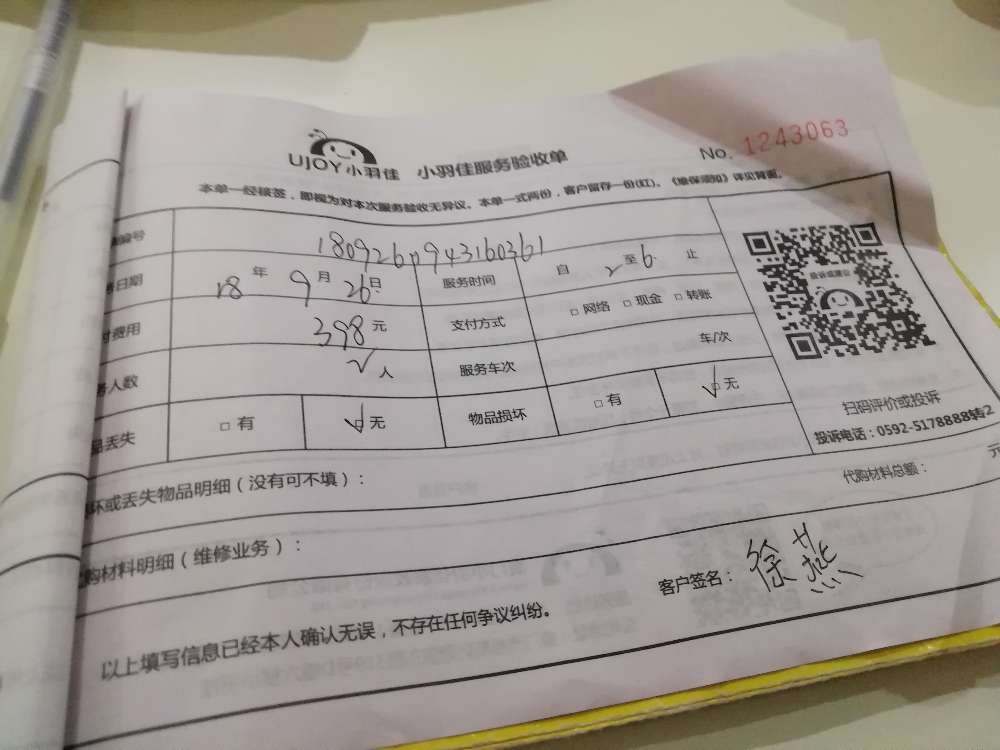 UJOY小羽佳 小羽佳服务验收单 No. 1243063
本单一经核签，即视为对本次服务验收无异议。本单一式两份，客户留存一份(红)。《维保须知》详见背面。
编号 180926094316036​1
日期 18 年 9 月 26 日 服务时间 自 2 至 6 止
付费用 398 元 支付方式 □ 网络 □ 现金 □ 转账
务人数 2 人 服务车次 车/次
品丢失 □ 有 □ 无 物品损坏 □ 有 □ 无
投诉或建议
扫码评价或投诉
投诉电话：0592-5178888转2
坏或丢失物品明细（没有可不填）：
代购材料总额： 元
购材料明细（维修业务）：
客户签名： 徐燕
以上填写信息已经本人确认无误，不存在任何争议纠纷。